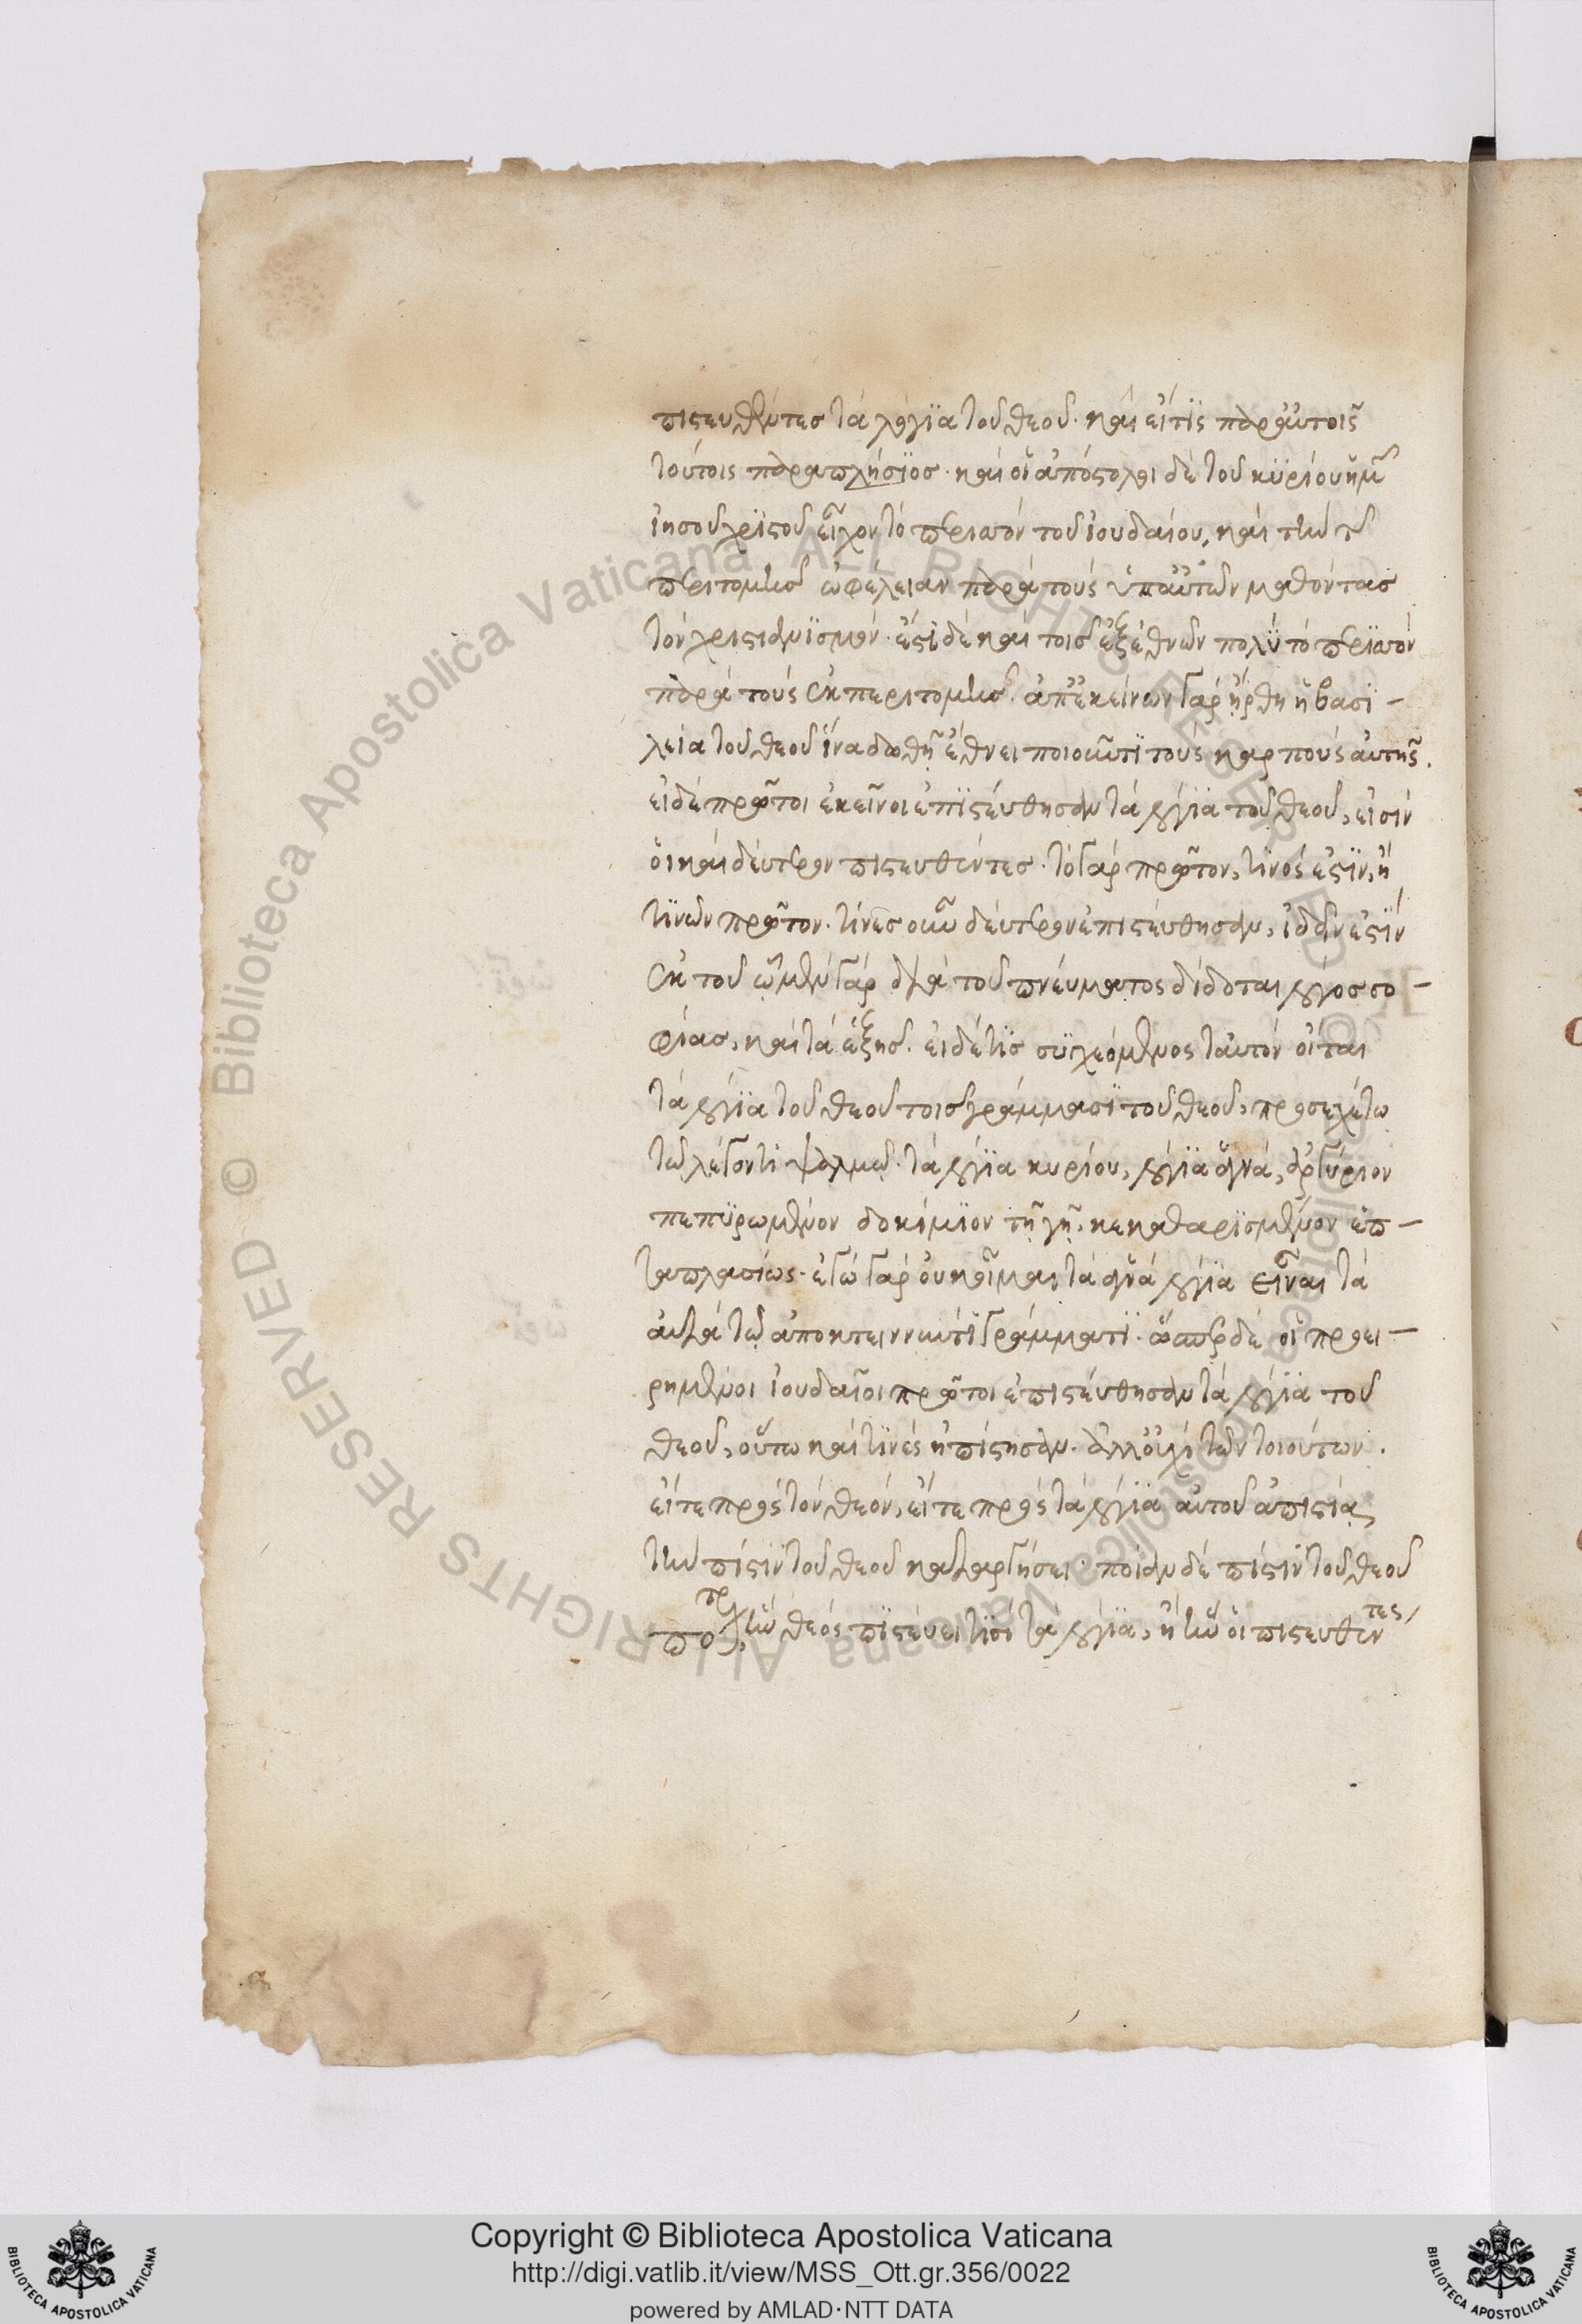 πιστευθέντες τὰ λόγϊα τοῦ θεοῦ· καὶ εἴ τϊς παρ' αὐτοῖς
τούτοις παραπλήσϊος· καὶ οἱ ἀπόστολοι δὲ τοῦ κϋρίου ἡμ
ἰησοῦ χρϊστοῦ εἶχον τὸ περισσὸν τοῦ ἰουδαίου, καὶ τὴν τ
περιτομῆς ὠφέλειαν παρὰ τοὺς ὑπ' αὐτῶν μαθόντας
τὸν χριστιανϊσμόν· ἔστϊ δὲ καὶ τοῖς ἐξ ἐθνῶν πολὺ τὸ περϊσσὸν
παρὰ τοὺς ἐκ περιτομῆς· ἀπ' ἐκείνων γὰρ ἤρθη ἡ βασϊ-
λεία τοῦ θεοῦ ἵνα δοθῇ ἔθνει ποιοῦντϊ τοὺς καρποὺς αὐτῆς.
εἰ δὲ πρῶτοι ἐκεῖνοι ἐπϊστεύθησαν τὰ λόγϊα τοῦ θεοῦ, εἰσὶν
οἱ καὶ δεύτερον πιστευθέντες· τὸ γὰρ πρῶτον, τϊνός ἐστϊν, ἢ
τϊνῶν πρῶτον· τίνες οὖν δεύτερον ἐπιστεύθησαν, ἰδεῖν ἐστϊν
ἐκ τοῦ ᾧ μὲν γὰρ διὰ τοῦ πνεύματος δίδοται λόγος σο-
φίας, καὶ τὰ ἑξῆς· εἰ δέ τϊς συγχεόμενος ταυτὸν οἴεται
τὰ λόγϊα τοῦ θεοῦ τοῖς γράμμασϊ τοῦ θεοῦ, προσεχέτω
τῷ λέγοντϊ ψαλμῷ· τὰ λόγϊα κυρίου, λόγϊα ἁγνά, ἀργύριον
πεπϋρωμένον δοκίμϊον τῇ γῇ, κεκαθαρϊσμένον ἑπ-
ταπλασίως· ἐγὼ γὰρ οὐκ οἶμαι τὰ ἁγνὰ λόγϊα εἶναι τὰ
ἀν τῷ ἀποκτειννύντϊ γράμματϊ· ὥσπερ δὲ οἱ προει-
ρημένοι ἰουδαῖοι πρῶτοι ἐπιστεύθησαν τὰ λόγϊα τοῦ
θεοῦ, οὕτω καὶ τϊνὲς ἠπίστησαν· ἀλλ' οὐχὶ τῶν τοιούτων.
εἴτε πρὸς τὸν θεὸν, εἴτε πρὸς τὰ λόγϊα αὐτοῦ ἀπιστία
τὴν πίστϊν τοῦ θεοῦ καταργήσει· ποίαν δὲ πίστϊν τοῦ θεοῦ
ἣν θεὸς πϊστεύει τϊσὶ τὰ λόγϊα, ἢ ἣν οἱ πιστευθέντες
Copyright © Biblioteca Apostolica Vaticana
http://digi.vatlib.it/view/MSS_Ott.gr.356/0022
powered by AMLAD·NTT DATA